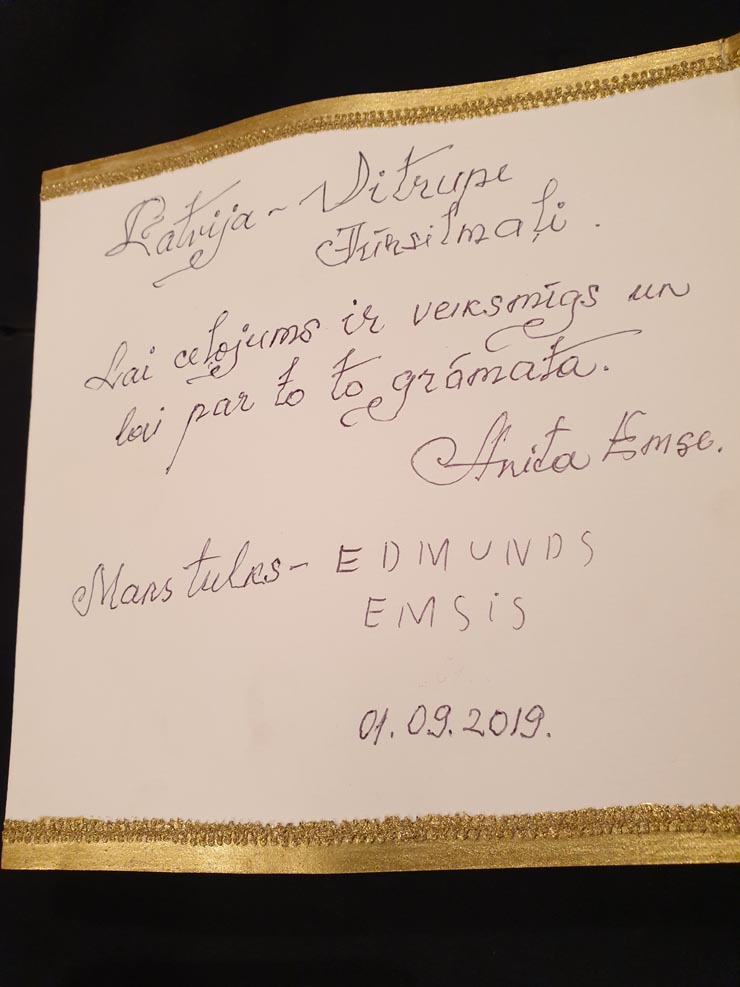 Latvija - Vitrupe
Jūrsilmaļi.
Lai ceļojums ir veiksmīgs un
lai par to to grāmata.
Anita Emse.
Mans tulks - EDMUNDS
EMSiS
01.09.2019.